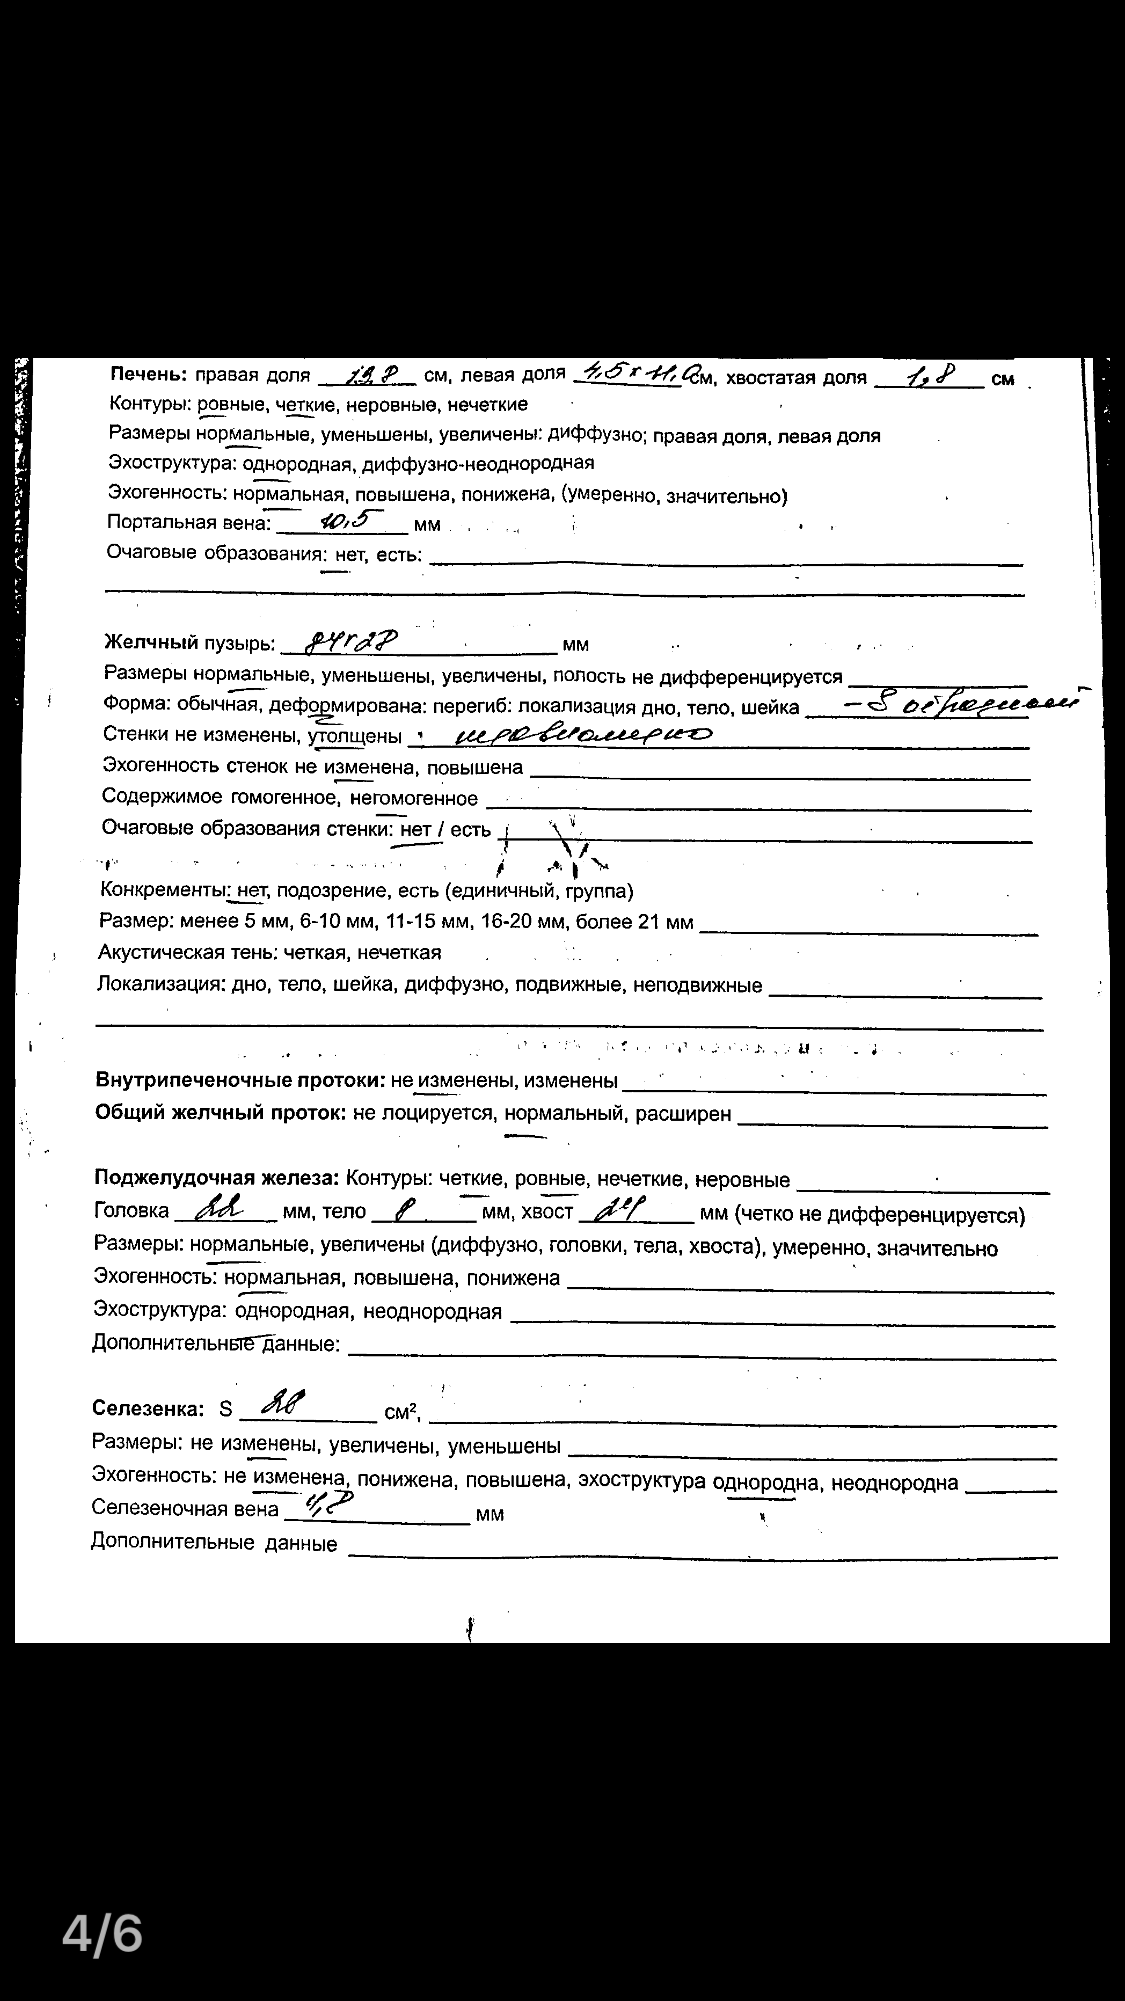 Печень: правая доля 13,8 см, левая доля 4,5 х 11,0 см, хвостатая доля 1,8 см
Контуры: ровные, четкие, неровные, нечеткие
Размеры нормальные, уменьшены, увеличены: диффузно; правая доля, левая доля
Эхоструктура: однородная, диффузно-неоднородная
Эхогенность: нормальная, повышена, понижена, (умеренно, значительно)
Портальная вена: 10,5 мм
Очаговые образования: нет, есть:
Желчный пузырь: мм
Размеры нормальные, уменьшены, увеличены, полость не дифференцируется
Форма: обычная, деформирована: перегиб: локализация дно, тело, шейка - S образный
Стенки не изменены, утолщены неравномерно
Эхогенность стенок не изменена, повышена
Содержимое гомогенное, негомогенное
Очаговые образования стенки: нет / есть
Конкременты: нет, подозрение, есть (единичный, группа)
Размер: менее 5 мм, 6-10 мм, 11-15 мм, 16-20 мм, более 21 мм
Акустическая тень: четкая, нечеткая
Локализация: дно, тело, шейка, диффузно, подвижные, неподвижные
Внутрипеченочные протоки: не изменены, изменены
Общий желчный проток: не лоцируется, нормальный, расширен
Поджелудочная железа: Контуры: четкие, ровные, нечеткие, неровные
Головка 22 мм, тело мм, хвост 24 мм (четко не дифференцируется)
Размеры: нормальные, увеличены (диффузно, головки, тела, хвоста), умеренно, значительно
Эхогенность: нормальная, повышена, понижена
Эхоструктура: однородная, неоднородная
Дополнительные данные:
Селезенка: S см²,
Размеры: не изменены, увеличены, уменьшены
Эхогенность: не изменена, понижена, повышена, эхоструктура однородна, неоднородна
Селезеночная вена 4,8 мм
Дополнительные данные
4/6